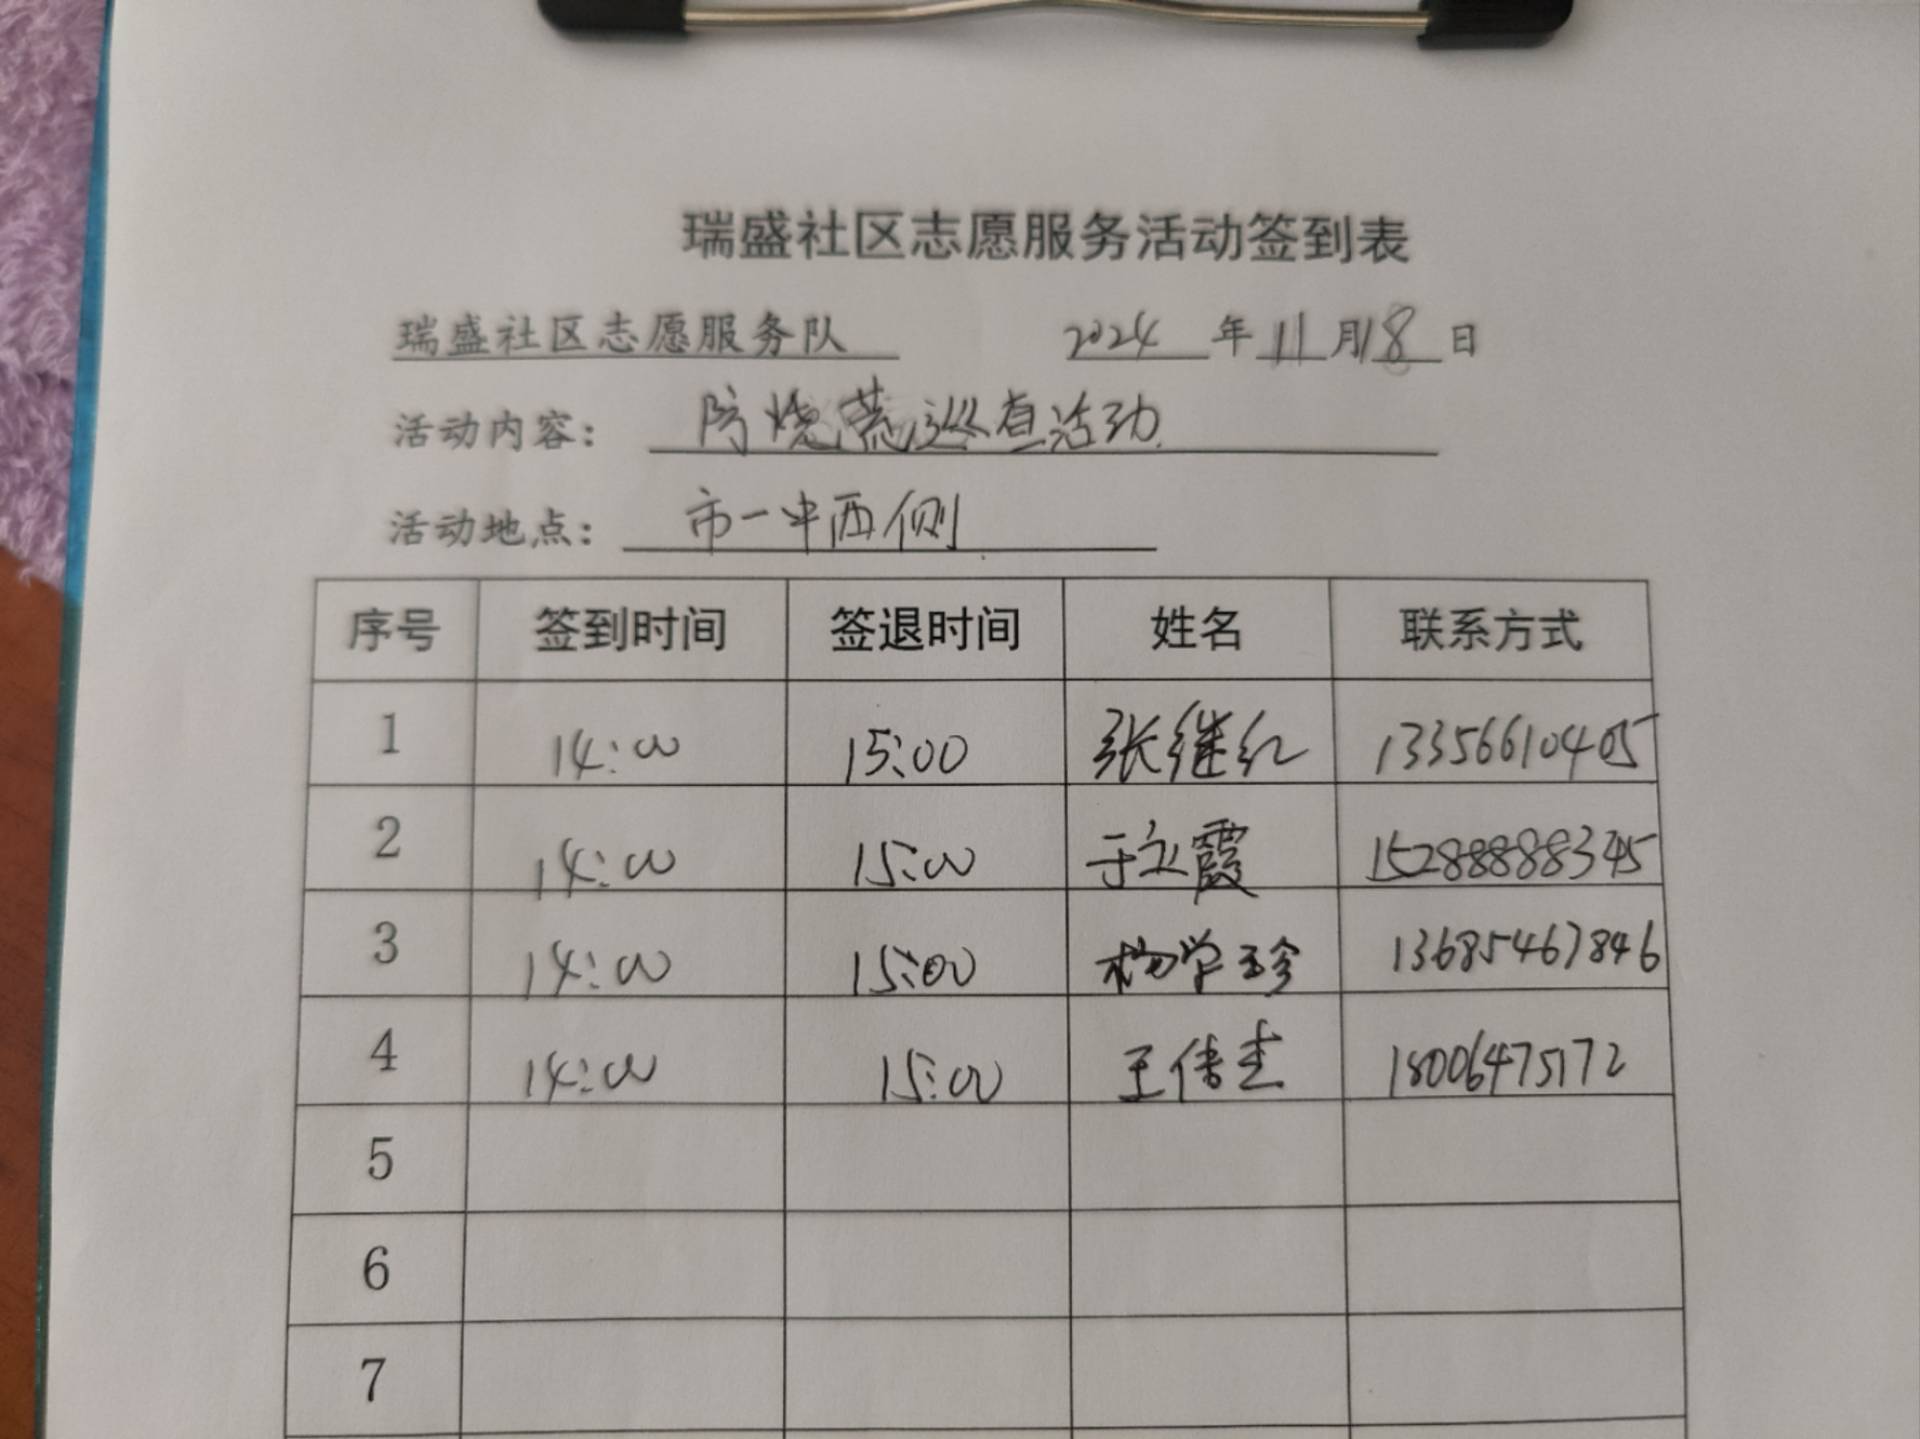 瑞盛社区志愿服务活动签到表
瑞盛社区志愿服务队 2024 年 11 月 18 日
活动内容： 防烧荒巡查活动
活动地点： 市一中西侧
序号 签到时间 签退时间 姓名 联系方式
1 14:00 15:00 张继红 13356610405
2 14:00 15:00 于立霞 15288888345
3 14:00 15:00 杨学珍 13685467846
4 14:00 15:00 王传 18006475172
5
6
7